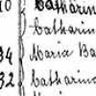 10 Catharin
Catharin
34 Maria Ba
32 Catharina